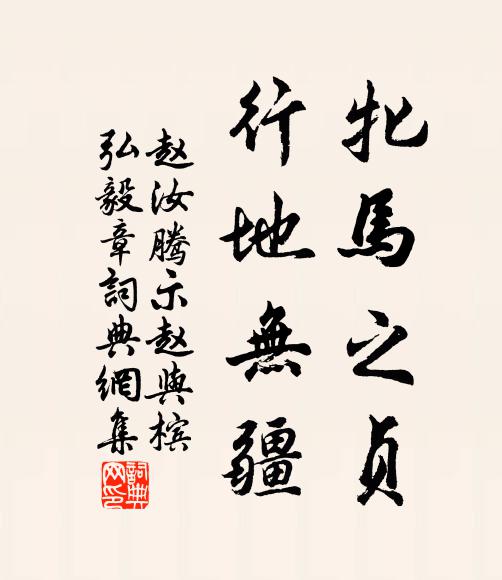 牝馬之貞
行地無疆
赵汝腾示赵與槟
弘毅章詞典網集
詞典
网印